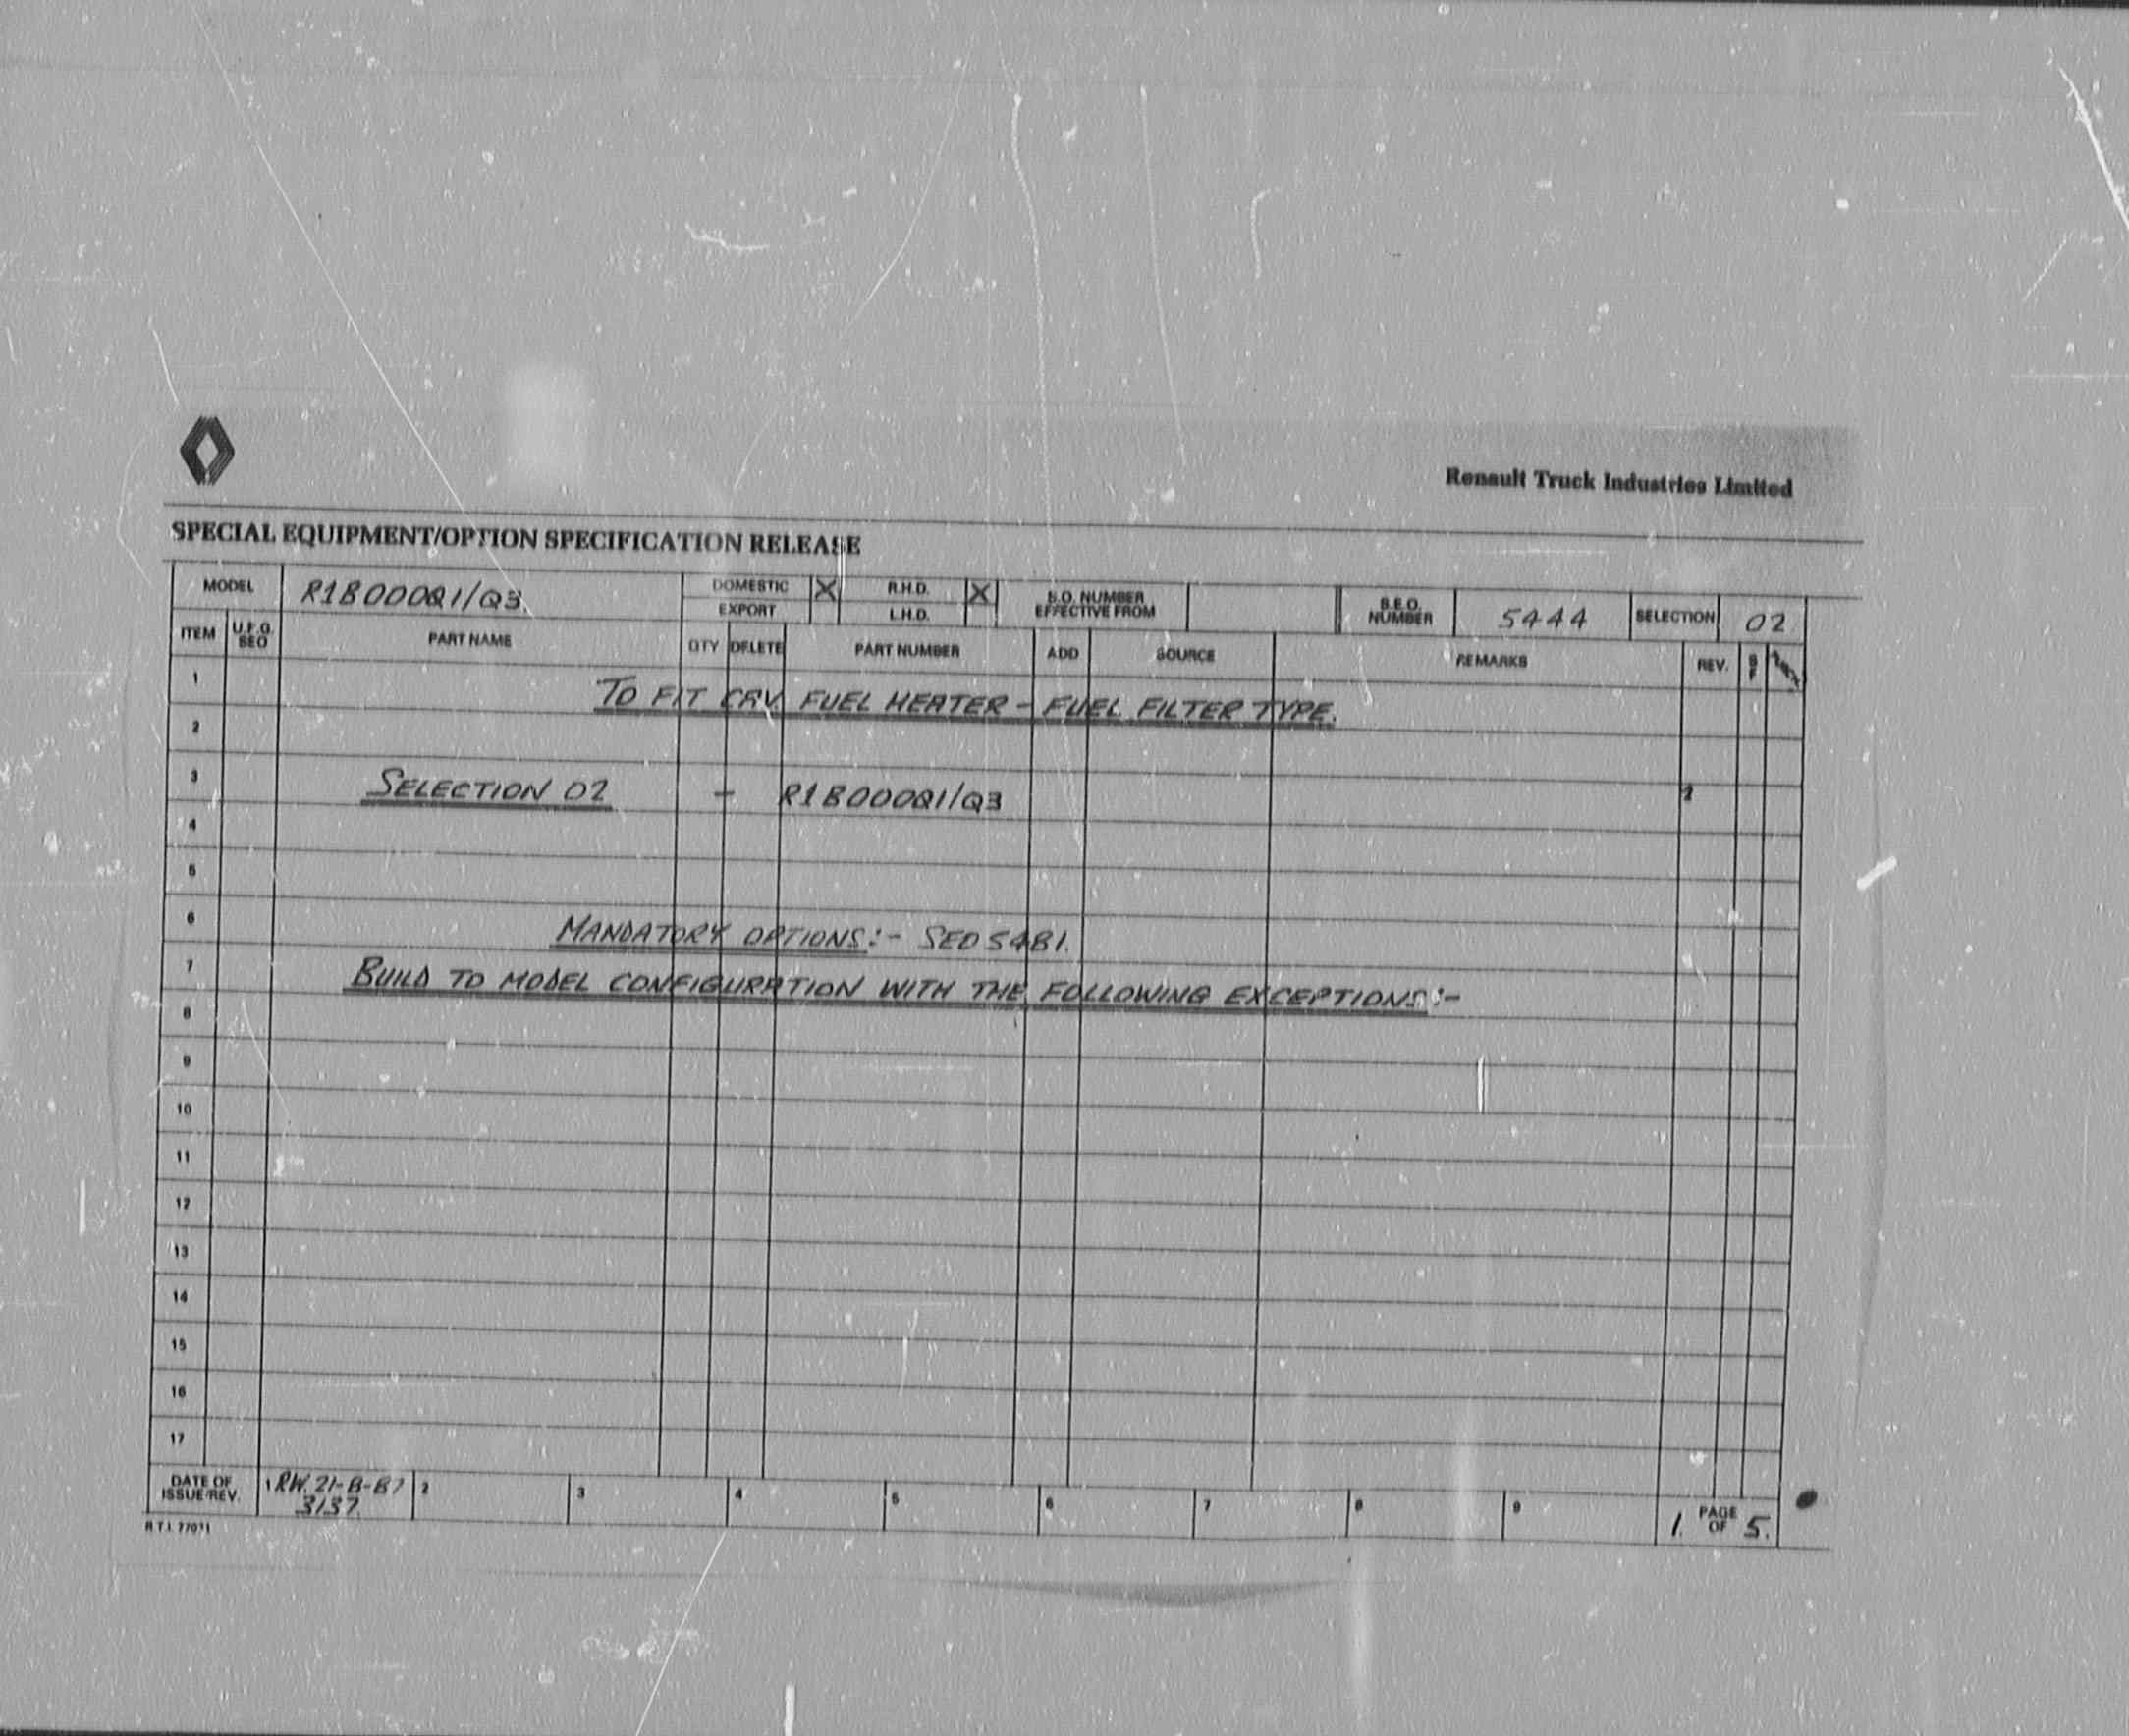 Renault Truck Industries Limited
SPECIAL EQUIPMENT/OPTION SPECIFICATION RELEASE
MODEL R1B000Q1/Q3. DOMESTIC X R.H.D. X S.O. NUMBER EFFECTIVE FROM S.E.O. NUMBER 5444 SELECTION 02
EXPORT L.H.D.
ITEM U.F.G. SEQ PART NAME QTY DELETE PART NUMBER ADD SOURCE REMARKS REV.
1 TO FIT CAV FUEL HEATER - FUEL FILTER TYPE.
2
3 SELECTION 02 - R1B000Q1/Q3 1
4
5
6 MANDATORY OPTIONS:- SEO 5481.
7 BUILD TO MODEL CONFIGURATION WITH THE FOLLOWING EXCEPTIONS:-
8
9
10
11
12
13
14
15
16
17
DATE OF ISSUE/REV. 1 RW. 21-8-87 2 3 4 5 6 7 8 9 1. PAGE OF 5.
3137.
R.T.I. 77011